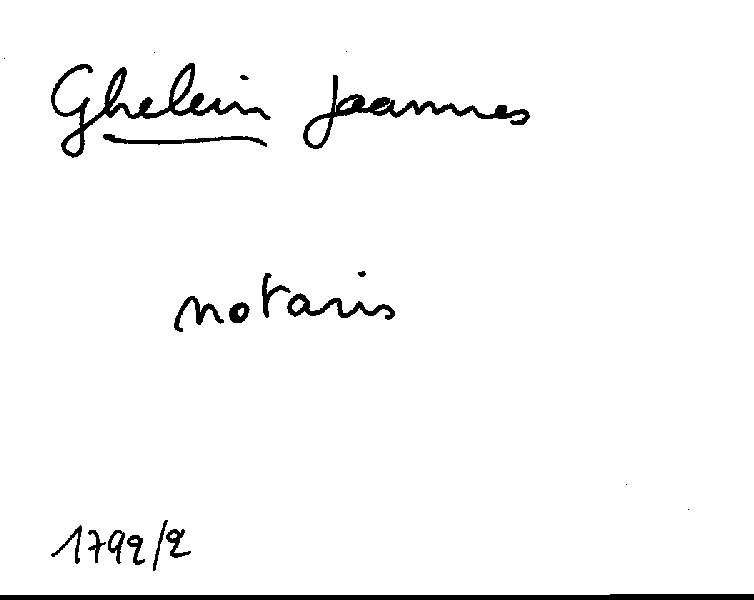 Ghelein Joannes
notaris
1792/2